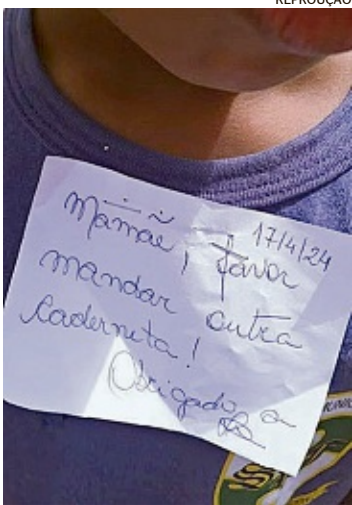 REPRODUÇÃO
17/4/24
Mamãe, favor
mandar outra
Caderneta!
Obrigado, a